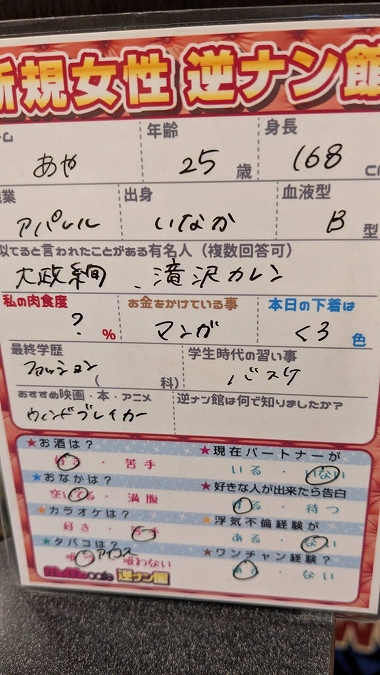 新規女性 逆ナン館
ーム 年齢 身長
あや 25 歳 168 cm
職業 出身 血液型
アパレル いなか B 型
似てると言われたことがある有名人（複数回答可）
大政絢、滝沢カレン
私の肉食度 お金をかけている事 本日の下着は
? % マンガ くろ 色
最終学歴 学生時代の習い事
ファッション （ 科） バスケ
おすすめ映画・本・アニメ 逆ナン館は何で知りましたか？
ウィンドブレイカー
★お酒は？ ★現在パートナーが
好き・苦手 いる・いない
★おなかは？ ★好きな人が出来たら告白
空いてる・満腹 する・待つ
★カラオケは？ ★浮気不倫経験が
好き・苦手 ある・ない
★タバコは？ アイコス ★ワンチャン経験？
吸う・吸わない ある・ない
cafe 逆ナン館